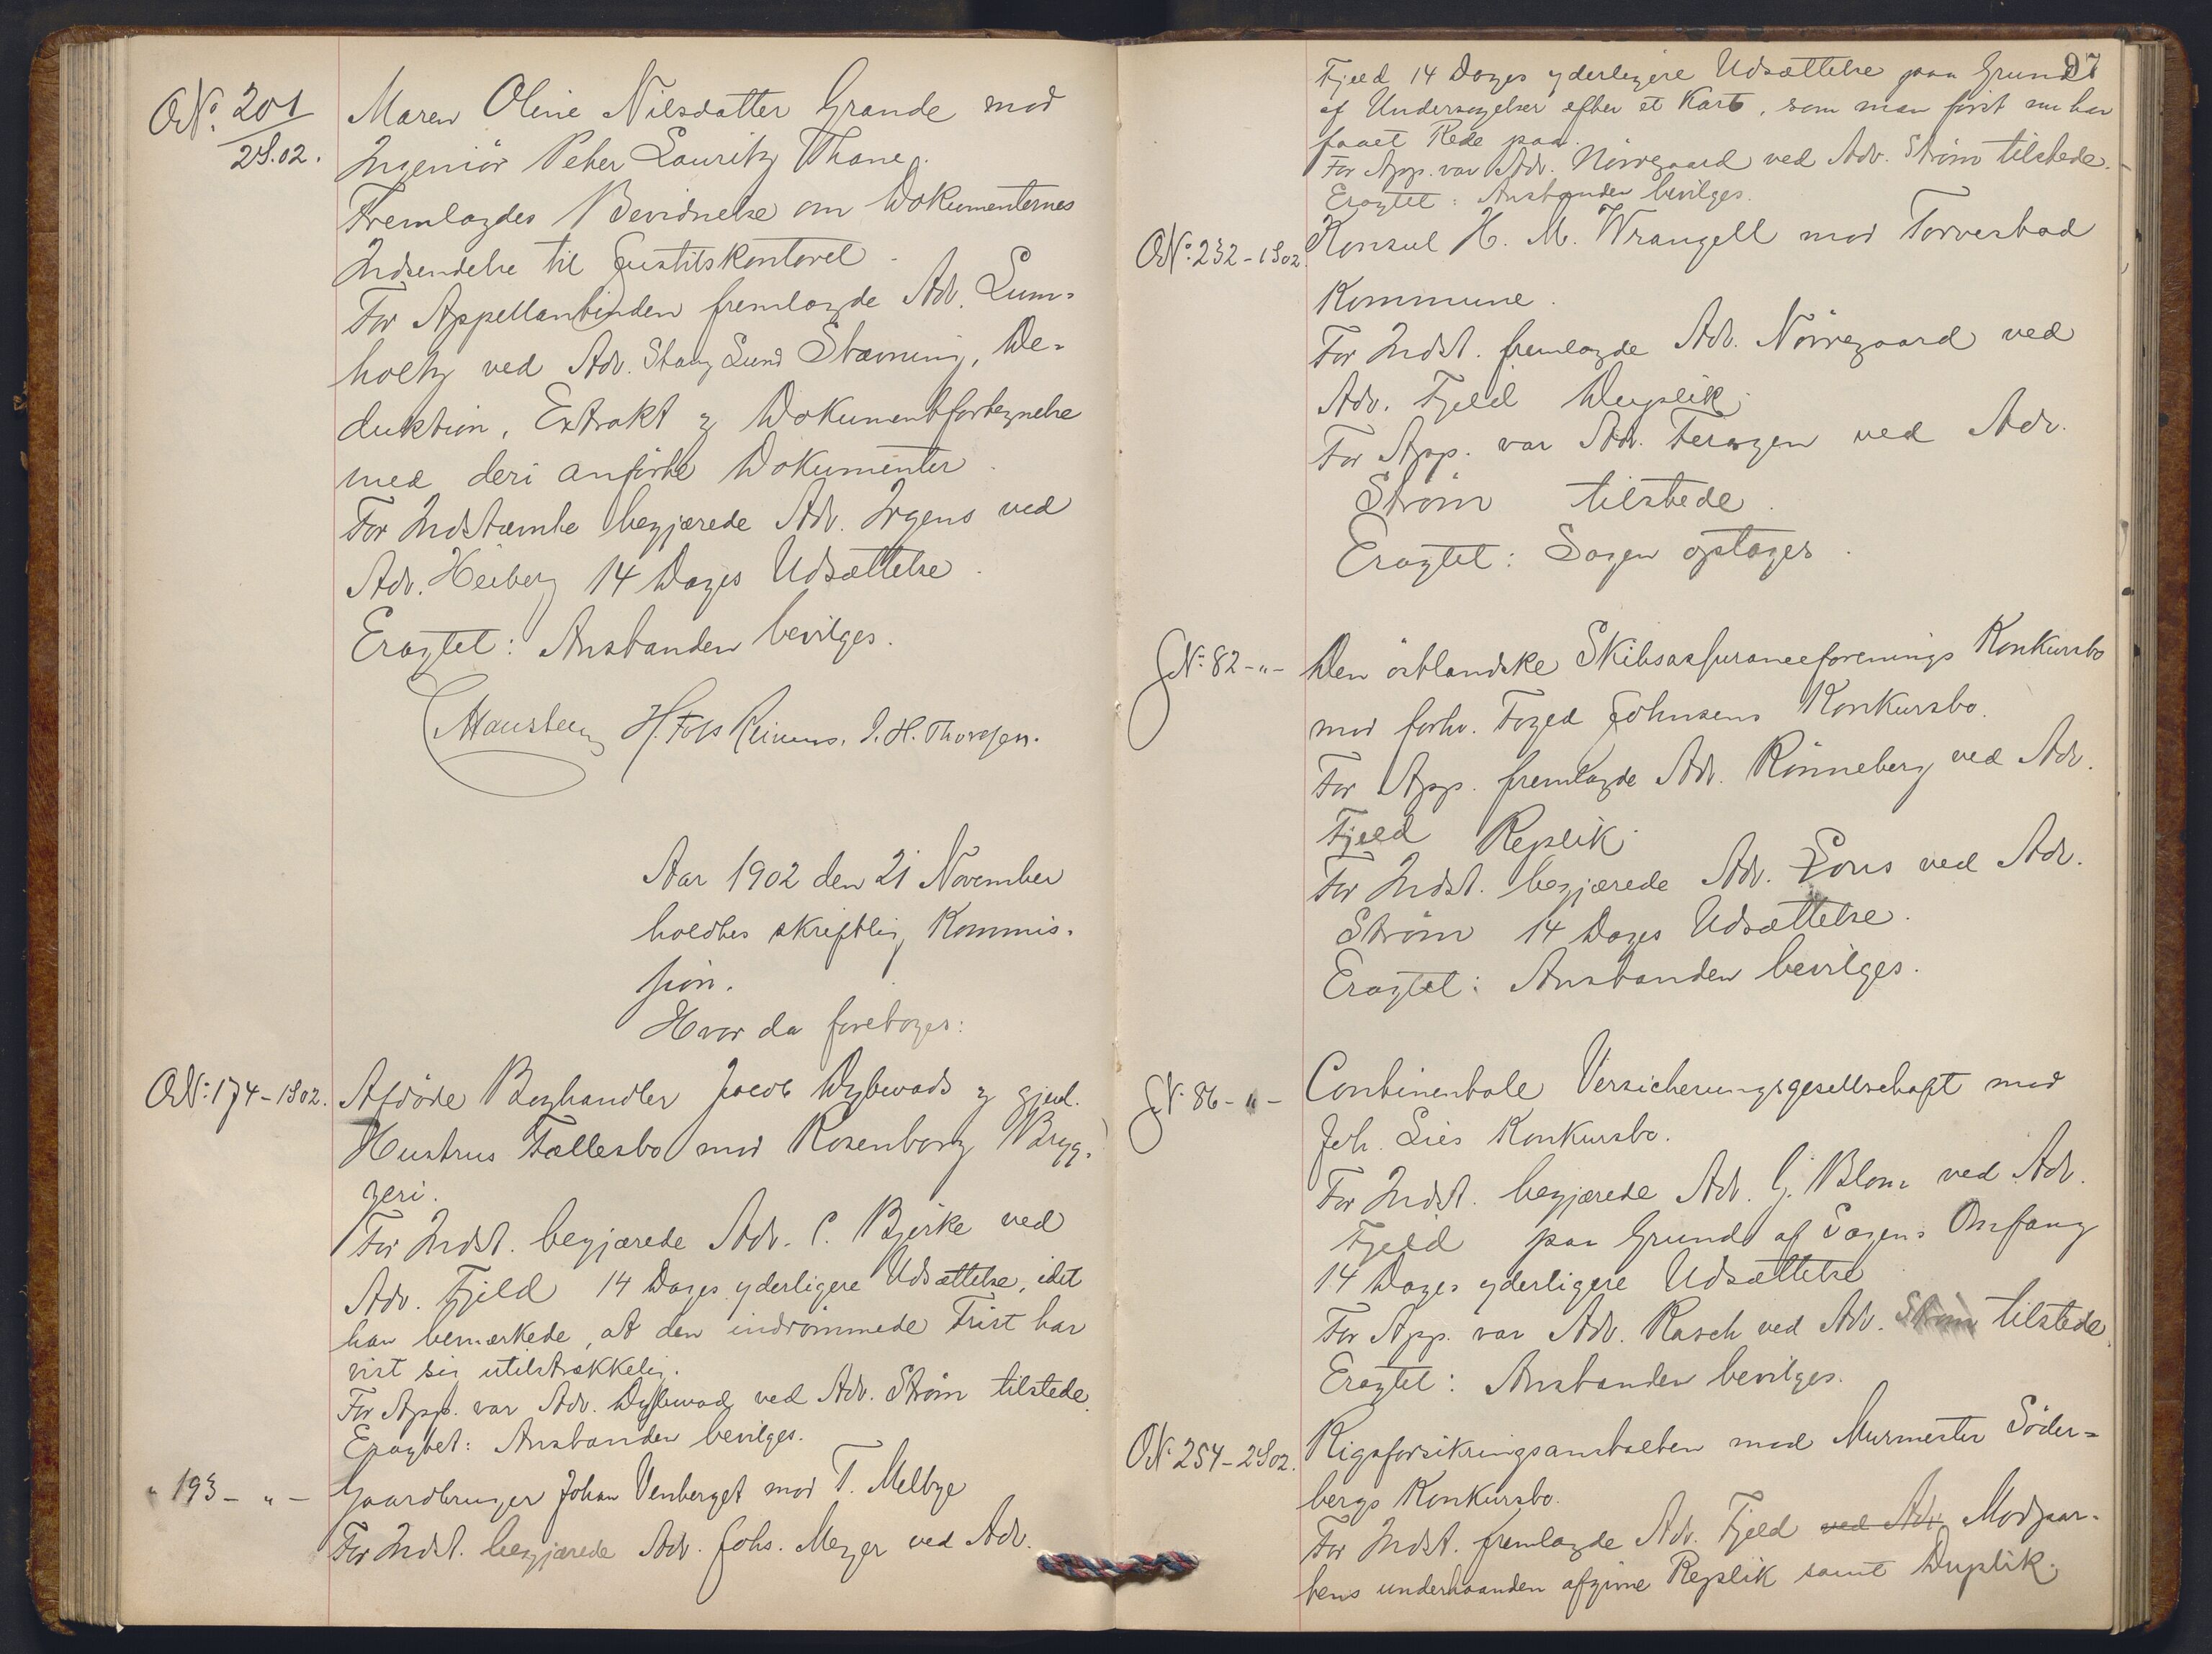 O№ 201
2S.02.
Maren Oline Nilsdatter Grande mod
Ingeniör Peter Lauritz Thane.
Fremlagdes Bevidnelse om Dokumenternes
Indsendelse til Justitskontoret.
For Appellantinden fremlagde Adv. Lum-
holtz ved Adv. Stang Lund Stævning, De-
duktion, Extrakt og Dokumentfortegnelse
med deri anförte Dokumenter.
For Indstævnte begjærede Adv. Irgens ved
Adv. Heiberg 14 Dages Udsættelse.
Eragtet: Anstanden bevilges.
Mausteen H. Foss Reimers. J. H. Thoresen.
Aar 1902 den 21 November
holdtes skriftlig Kommis-
sion.
Hvor da foretoges:
O№: 174-1S02.
Afdöde Boghandler Jacob Dybwads og gjenl.
Hustrus Fællesbo mod Rosenborg Brygg-
geri.
For Indst. begjærede Adv. C. Bjerke ved
Adv. Fjeld 14 Dages yderligere Udsættelse, idet
han bemærkede, at den indrömmede Frist har
vist sig utilstrækkelig.
For App. var Adv. Dybwad ved Adv. Ström tilstede.
Eragtet: Anstanden bevilges.
" 193 - " -
Gaardbruger Johan Venberget mod T. Melbye
For Indst. begjærede Adv. Johs. Meyer ved Adv.
97
Fjeld 14 Dages yderligere Udsættelse paa Grund
af Undersøgelser efter et Kart, som man först nu har
faaet Rede paa.
For App. var Adv. Nörregaard ved Adv. Ström tilstede.
Eragtet: Anstanden bevilges.
O№: 232-1S02
Konsul H. M. Wrangell mod Torvestad
Kommune.
For Indst. fremlagde Adv. Nörregaard ved
Adv. Fjeld Duplik.
For App. var Adv. Feragen ved Adv.
Ström tilstede.
Eragtet: Sagen optages.
G№: 82-"-
Den östlandske Skibsassuranceforenings Konkursbo
mod forhv. Foged Johnsens Konkursbo.
For App. fremlagde Adv. Rönneberg ved Adv.
Fjeld Replik.
For Indst. begjærede Adv. Lous ved Adv.
Ström 14 Dages Udsættelse.
Eragtet: Anstanden bevilges.
G№ 86-"-
Continentale Versicherungsgesellschaft mod
Joh. Lies Konkursbo.
For Indst. begjærede Adv. G. Blom ved Adv.
Fjeld paa Grund af Sagens Omfang
14 Dages yderligere Udsættelse
For App. var Adv. Rasch ved Adv. Ström tilstede
Eragtet: Anstanden bevilges.
O№ 254-2S02.
Rigsforsikringsanstalten mod Murmester Söder-
bergs Konkursbo.
For Indst. fremlagde Adv. Fjeld ved Adv. Modpar-
tens underhaanden afgivne Replik samt Duplik.